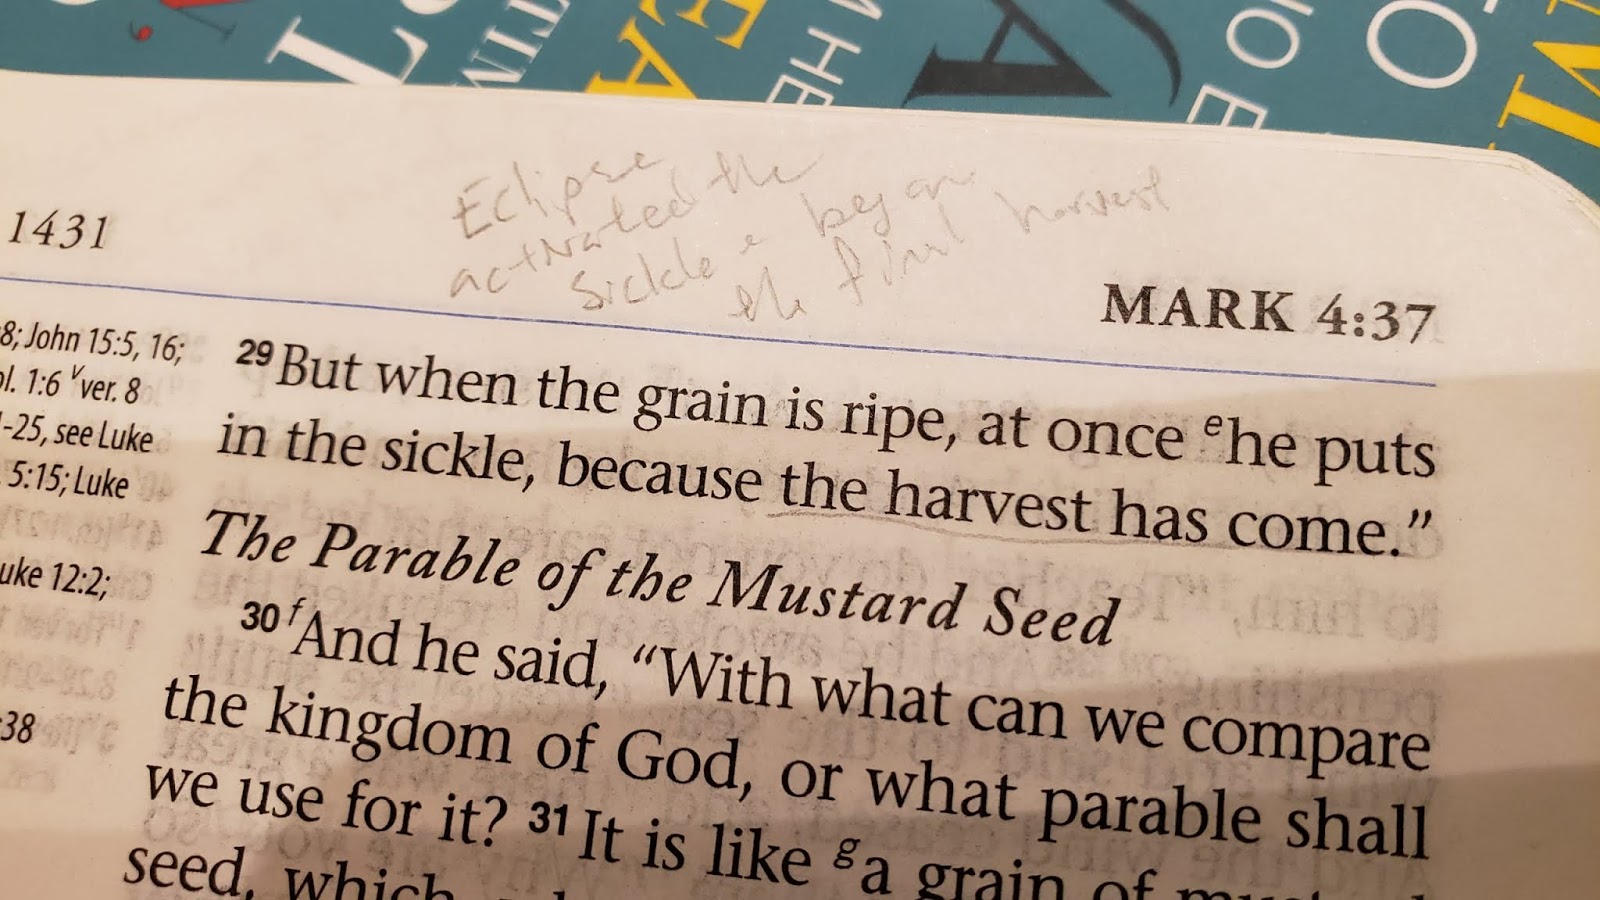 Eclipse
activated the
sickle & began
the final harvest
1431
MARK 4:37
8; John 15:5, 16;
1:6 ᵛver. 8
-25, see Luke
5:15; Luke
uke 12:2;
:38
29 But when the grain is ripe, at once ᵉhe puts
in the sickle, because the harvest has come.”
The Parable of the Mustard Seed
30 ᶠAnd he said, “With what can we compare
the kingdom of God, or what parable shall
we use for it? 31 It is like ᵍa grain of
seed, which